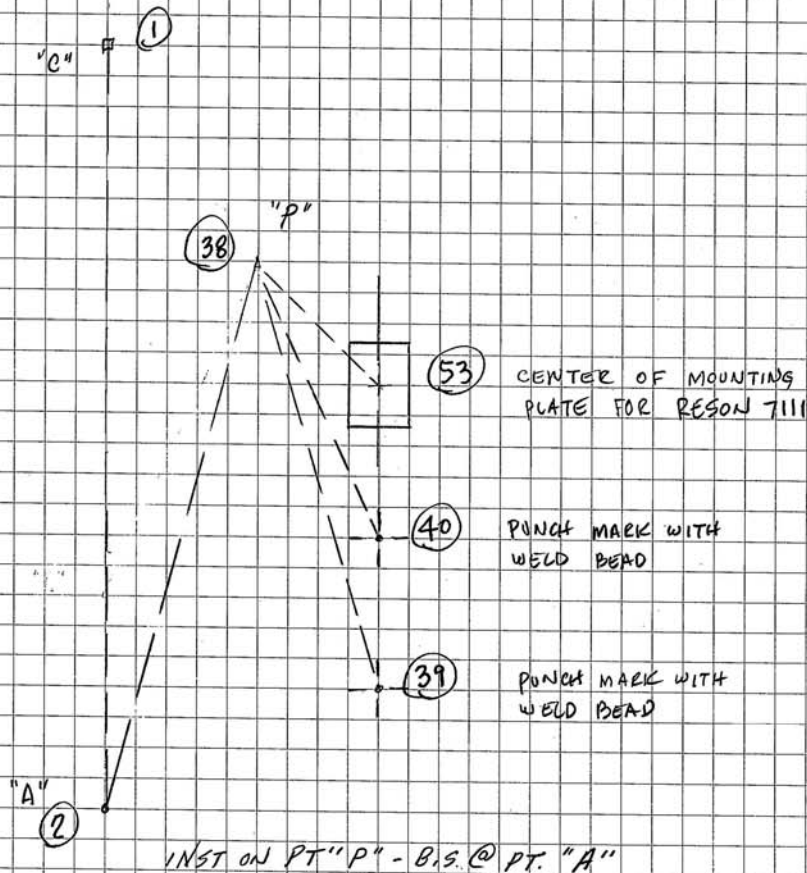 1
"C"
"P"
38
53
CENTER OF MOUNTING
PLATE FOR RESON 7111
40
PUNCH MARK WITH
WELD BEAD
39
PUNCH MARK WITH
WELD BEAD
"A"
2
INST ON PT "P" - B.S. @ PT. "A"